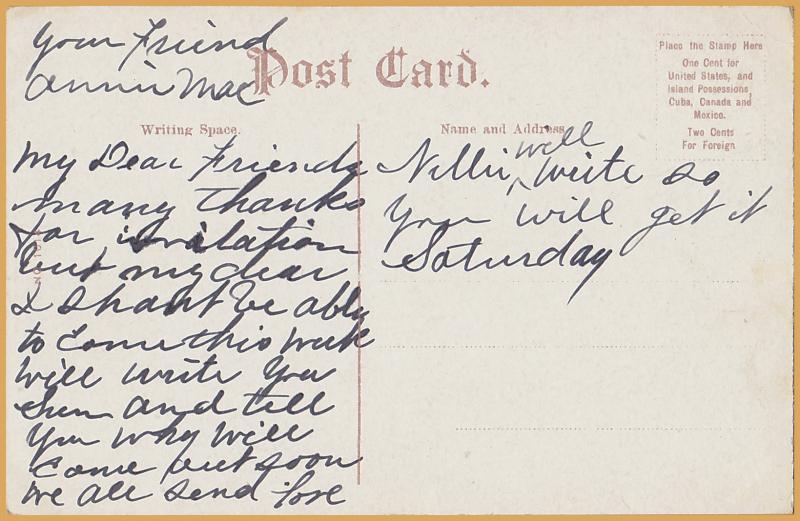 Your Friend
Annie Mac
Post Card.
Place the Stamp Here
One Cent for
United States, and
Island Possessions,
Cuba, Canada and
Mexico.
Two Cents
For Foreign
Writing Space.
Name and Address
My Dear Friends
many thanks
for invitation
but my dear
I shant be able
to come this week
will write you
and tell
you why will
come out soon
we all send love
Nellie will write so
you will get it
Saturday